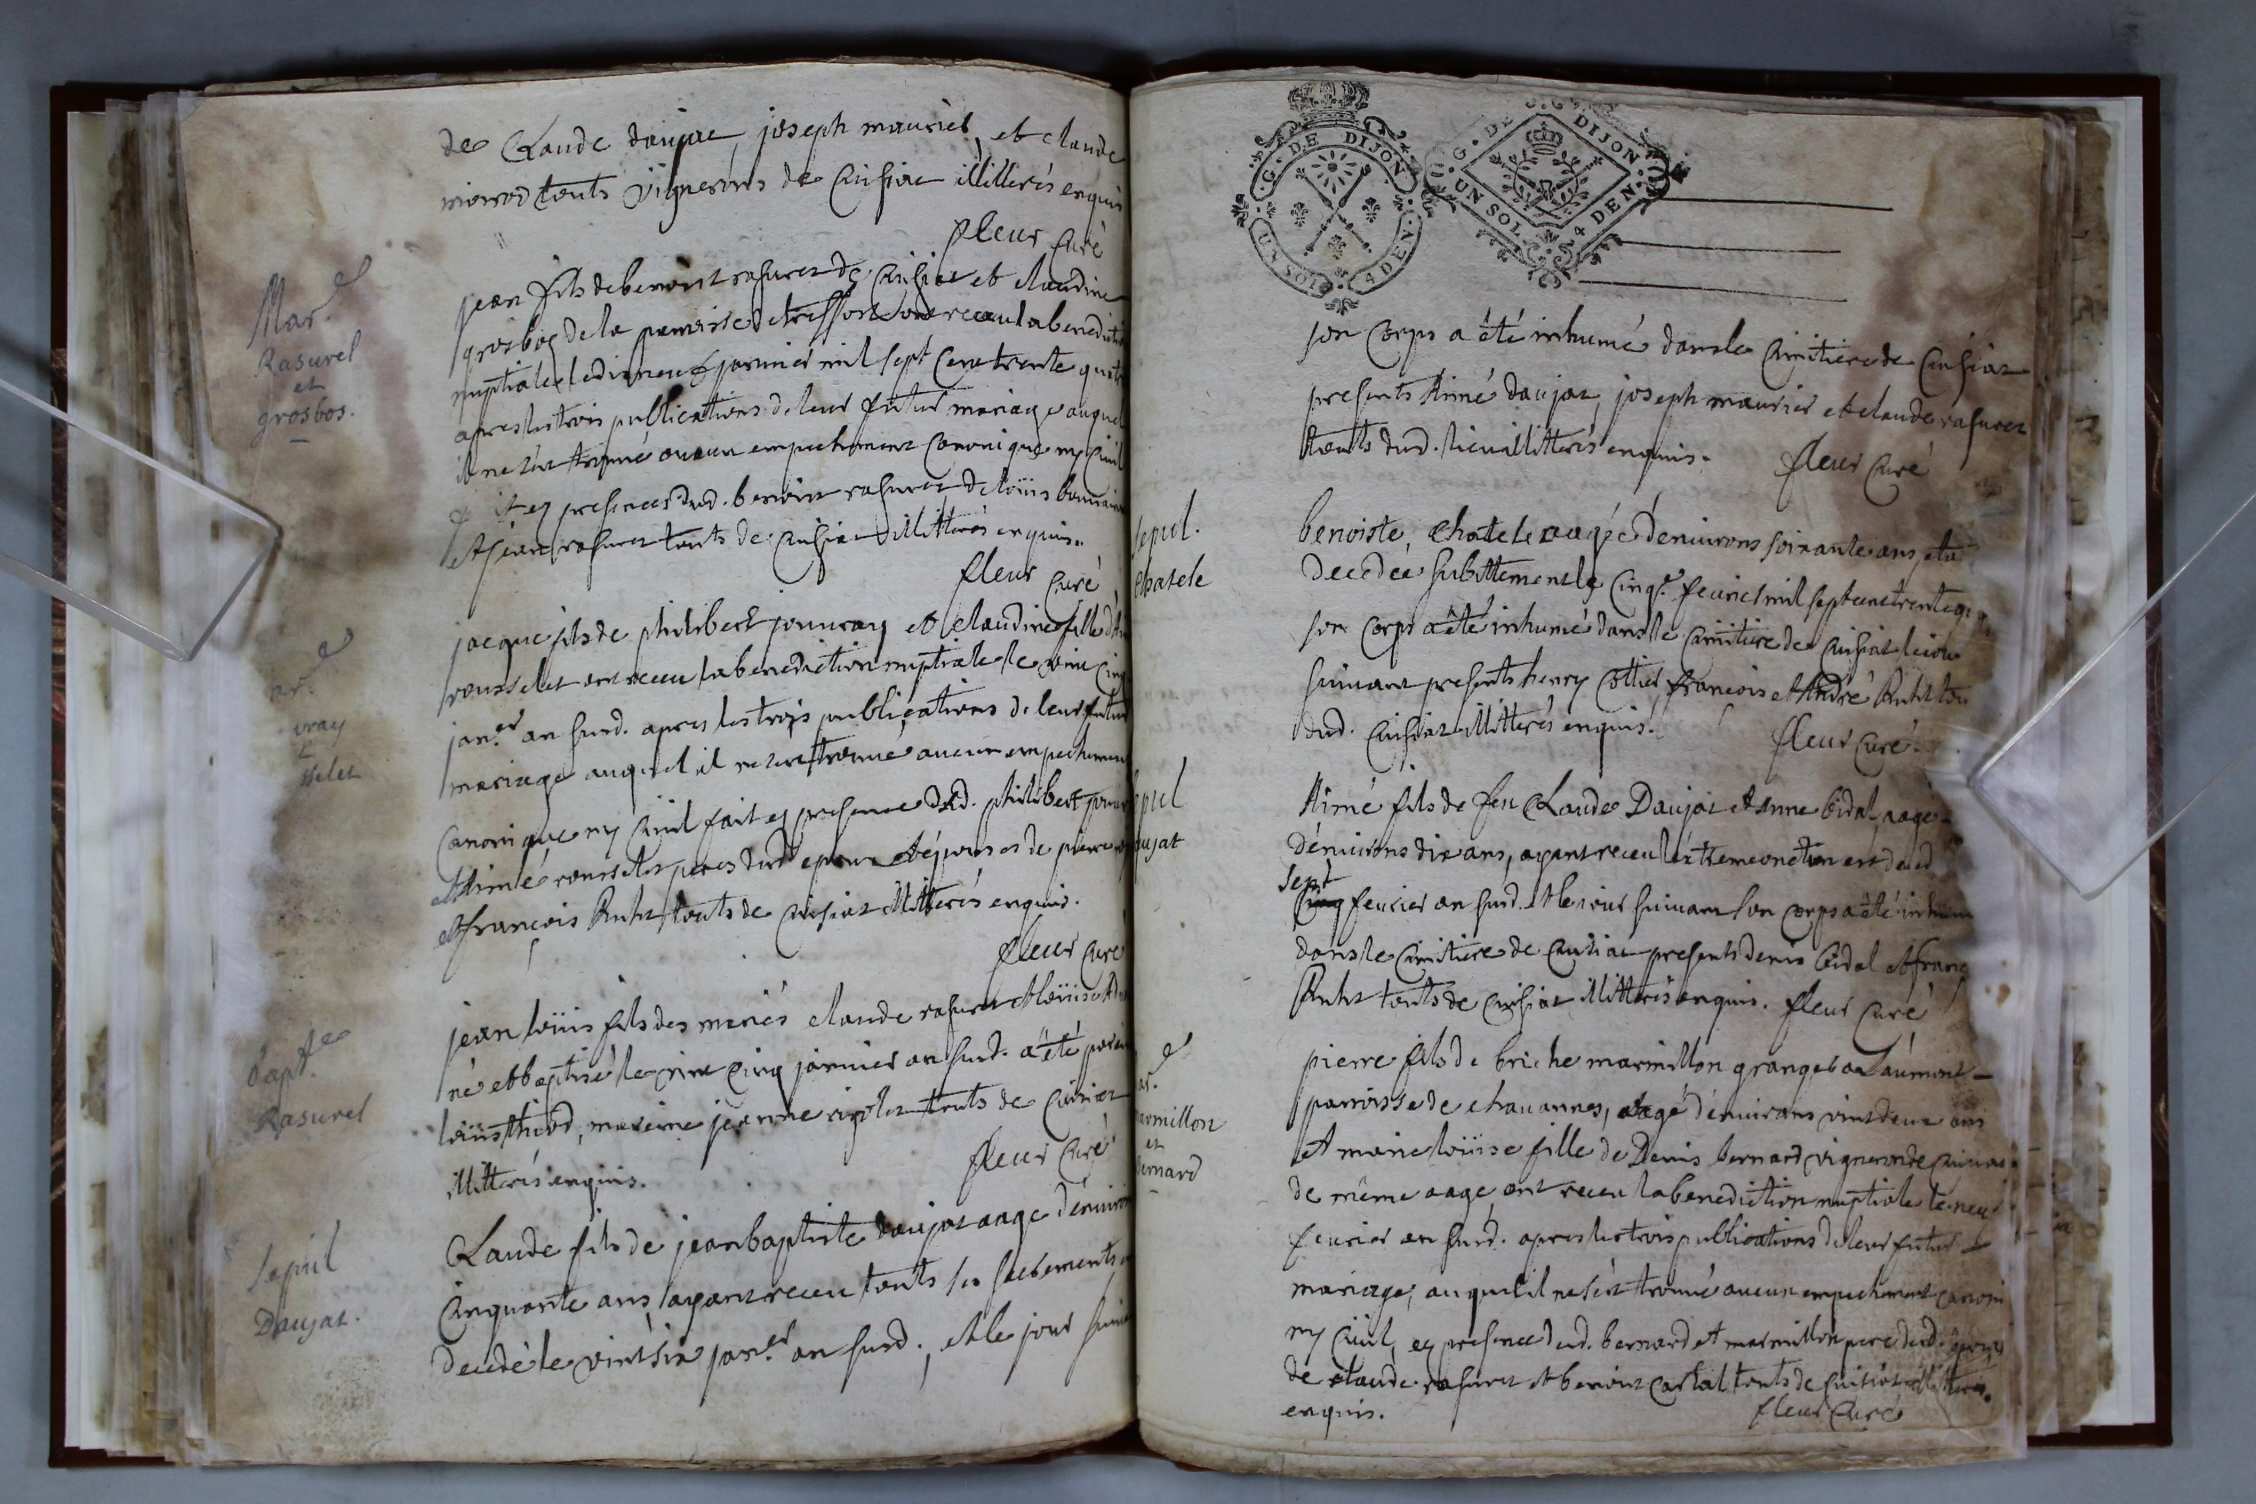 de Claude daujat, joseph maurier, et claude
touts vignerons de Cuisiat illitterés enquis
fleur Curé
Mar.e
Rasurel
et
grosbos.
jean fils de benoist rasurel de Cuisiat et claudine
grosbos de la parroisse de treffort ont receu la benedicti
nuptiale le dixneuf janvier mil sept cent trente quat
apres les trois publications de leur futur mariage auquel
il ne s'est trouvé aucun empechement canonique ny civil
et en presences dud. benoist rasurel de loüis
et jean rasurel touts de Cuisiat illitterés enquis.
fleur Curé
ar.e
vray
et
sselet
jacque fils de philibert jouvray et claudine fille d'
rousselet ont receu la benediction nuptiale le vint cinq
jan.er an susd. apres les trois publications de leur futur
mariage auquel il ne s'est trouvé aucun empechement
canonique ny civil fait en presence dud. philibert jouv
et Aimé rousselet peres dud. epoux et épouses de pierre
et françois Ruht touts de Cuisiat illitterés enquis.
fleur Curé
bapt.e
Rasurel
jean loüis fils des mariés claude rasurel et loüise
né et baptisé le vint cinq janvier an susd. a été parain
loüis thivod, maraine jeanne touts de Cuisiat
illitterés enquis.
fleur Curé
Sepul
Daujat.
Claude fils de jean baptiste daujat aagé d'environ
cinquante ans, ayant receu touts ses sacrements
decedé le vint six jan.er an susd., et le jour suiva
G. DE DIJON
UN SOL 4 DEN.
G. DE DIJON
UN SOL 4 DEN.
son corps a été inhumé dans le cimitiere de Cuisiat
presents Aimé daujat, joseph maurier et claude rasurel
touts dud. lieu illitterés enquis. fleur Curé
sepul.
Chatele
benoiste Chatele aagée d'environs soixante ans, etu
decedée subittement le cinq.e fevrier mil sept cent trente qu
son corps a été inhumé dans le cimitiere de Cuisiat le jour
suivant presents henry Cottier, francois et André Ruht tou
dud. Cuisiat illitterés enquis. fleur Curé.
epul
aujat
Aimé fils de feu Claude Daujat et Anne bidal, aagé
d'environs dix ans, ayant receu l'extreme onction est deced
sept
fevrier an susd. et le jour suivant son corps a été inhum
dans le cimitiere de Cuisiat presents denis bidal et franç
Ruht touts de Cuisiat illitterés enquis. fleur Curé
ar.e
armillon
et
bernard
pierre fils de briche marmillon granger a Laumont
parroisse de chavannes, aagé d'environs vint deux ans
et marie loüise fille de Denis bernard vigneron de Cuisiat
de même aage ont receu la benediction nuptiale le neuf
fevrier an susd. apres les trois publications de leur futur
mariage, auquel il ne s'est trouvé aucun empechement canoni
ny civil, en presence dud. bernard et marmillon pere dud. époux
de claude rasurel et benoist cartal touts de Cuisiat illitterés
enquis. fleur Curé